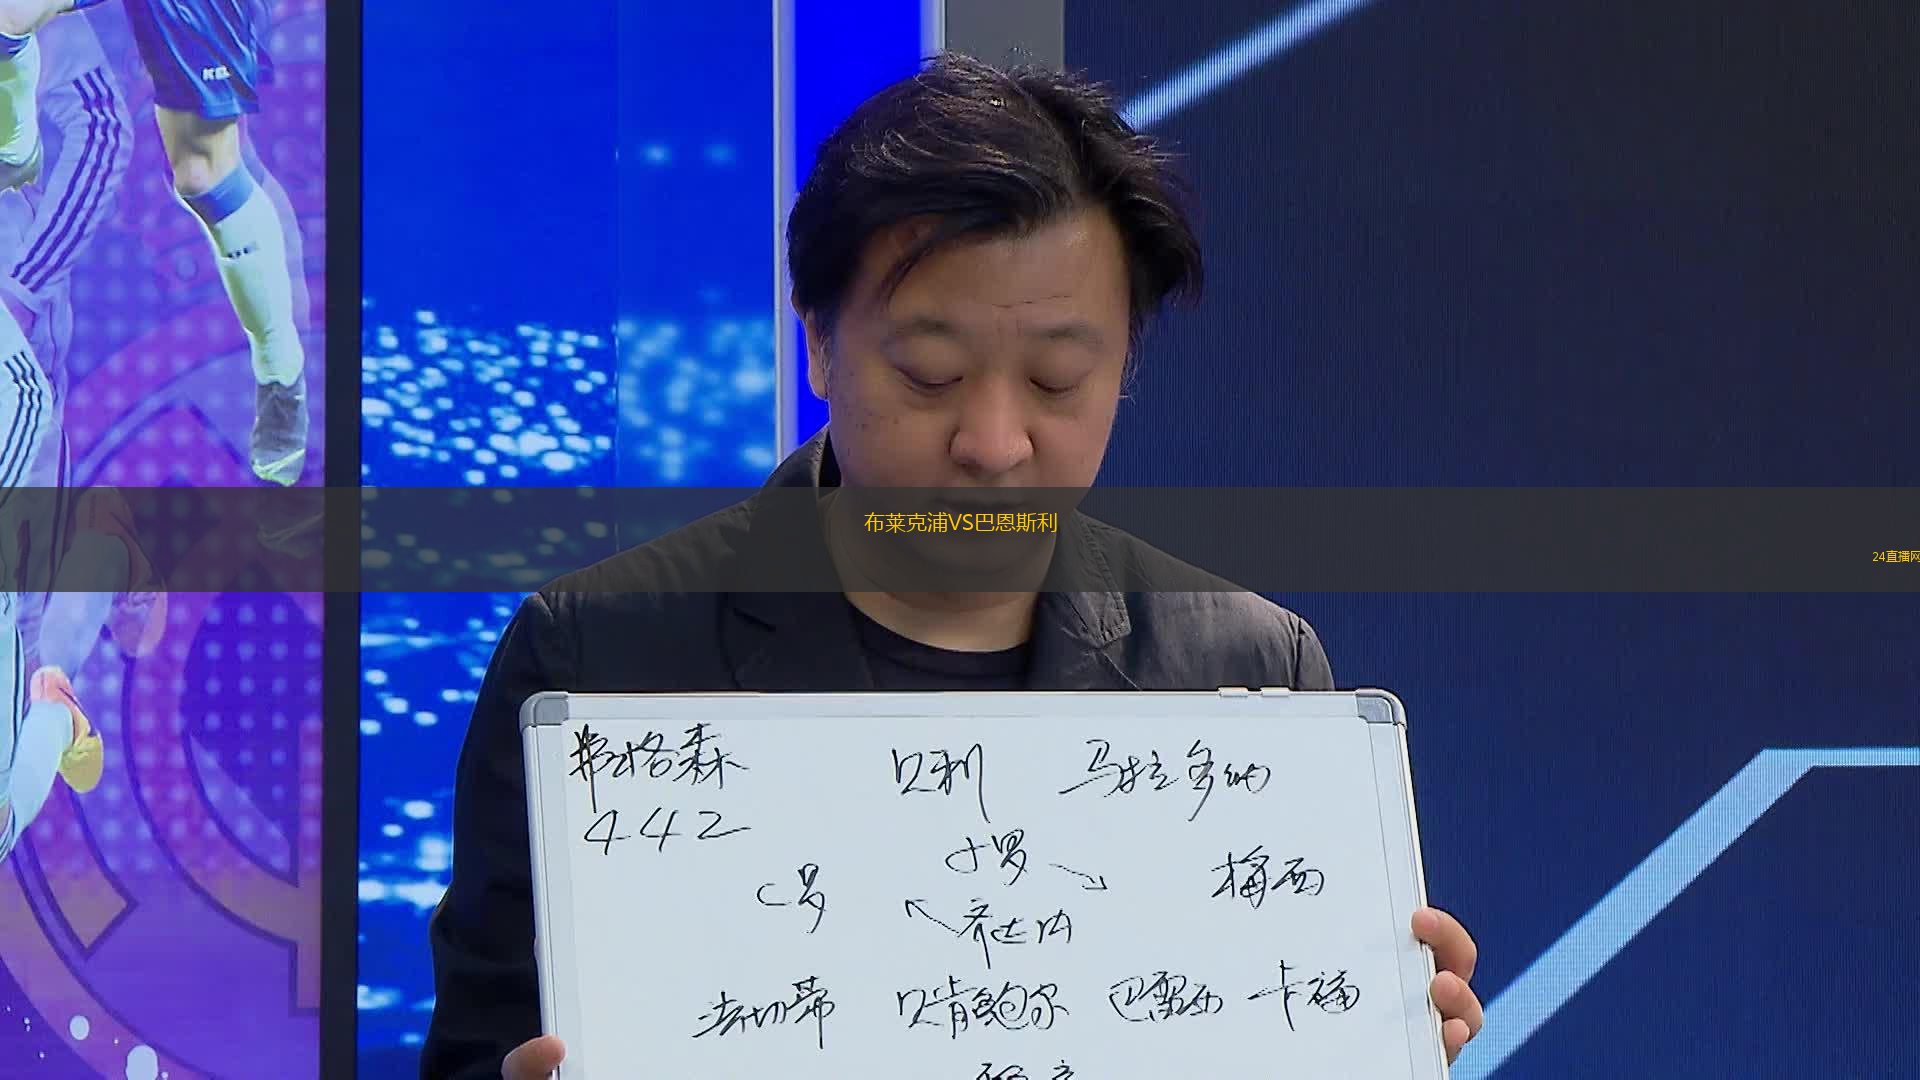 布莱克浦VS巴恩斯利
24直播网
弗格森 贝利 马拉多纳
442
小罗
C罗 梅西
齐达内
法切蒂 贝肯鲍尔 巴雷西 卡福